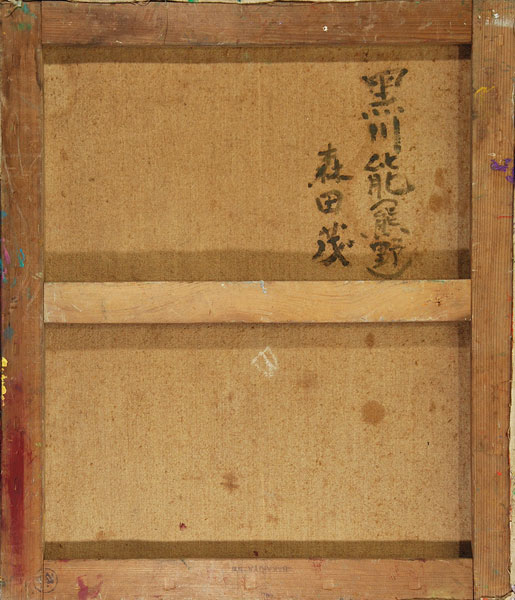 黒川能(熊野)
森田茂